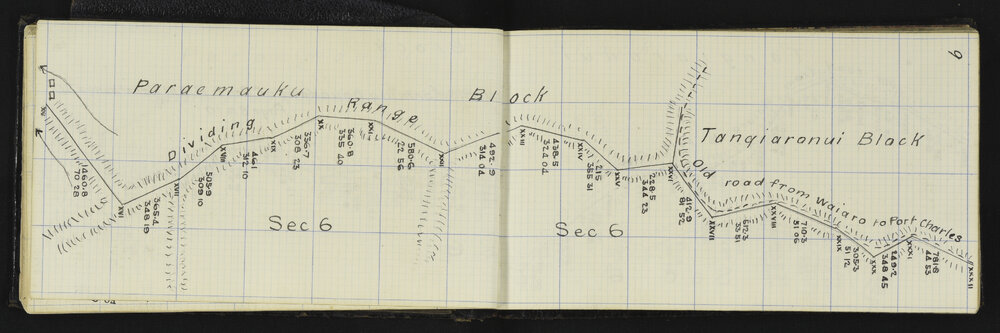 9
Paraemauku Block
Dividing Range
Tangiaronui Block
Old road from Waiaro to Port Charles
Sec 6
Sec 6
1460.8
70 28
XVI
365.4
348 19
XVII
505.9
309 10
XVIII
461
312 10
XIX
536.7
308 23
XX
360.8
335 40
XXI
580.6
22 56
XXII
492.9
314 04
XXIII
438.5
324 04
XXIV
215
355 31
XXV
228.5
344 23
XXVI
412.9
81 52
XXVII
612.3
33 51
XXVIII
710.3
51 06
XXIX
51 12
305.3
XXX
348 45
249.2
XXXI
781.8
44 53
XXXII